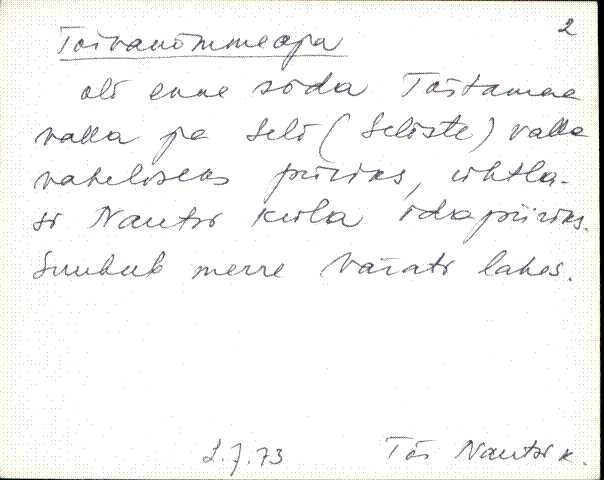 2
Toivanõmmeoja
oli enne sõda Tõstamaa
valla ja Seli (Seliste) valla
vaheliseks piiriks, ühtla-
si Nautsi küla idapiiriks.
Suubub merre Värati lahes.
2.7.73 Tõs Nautsi k.